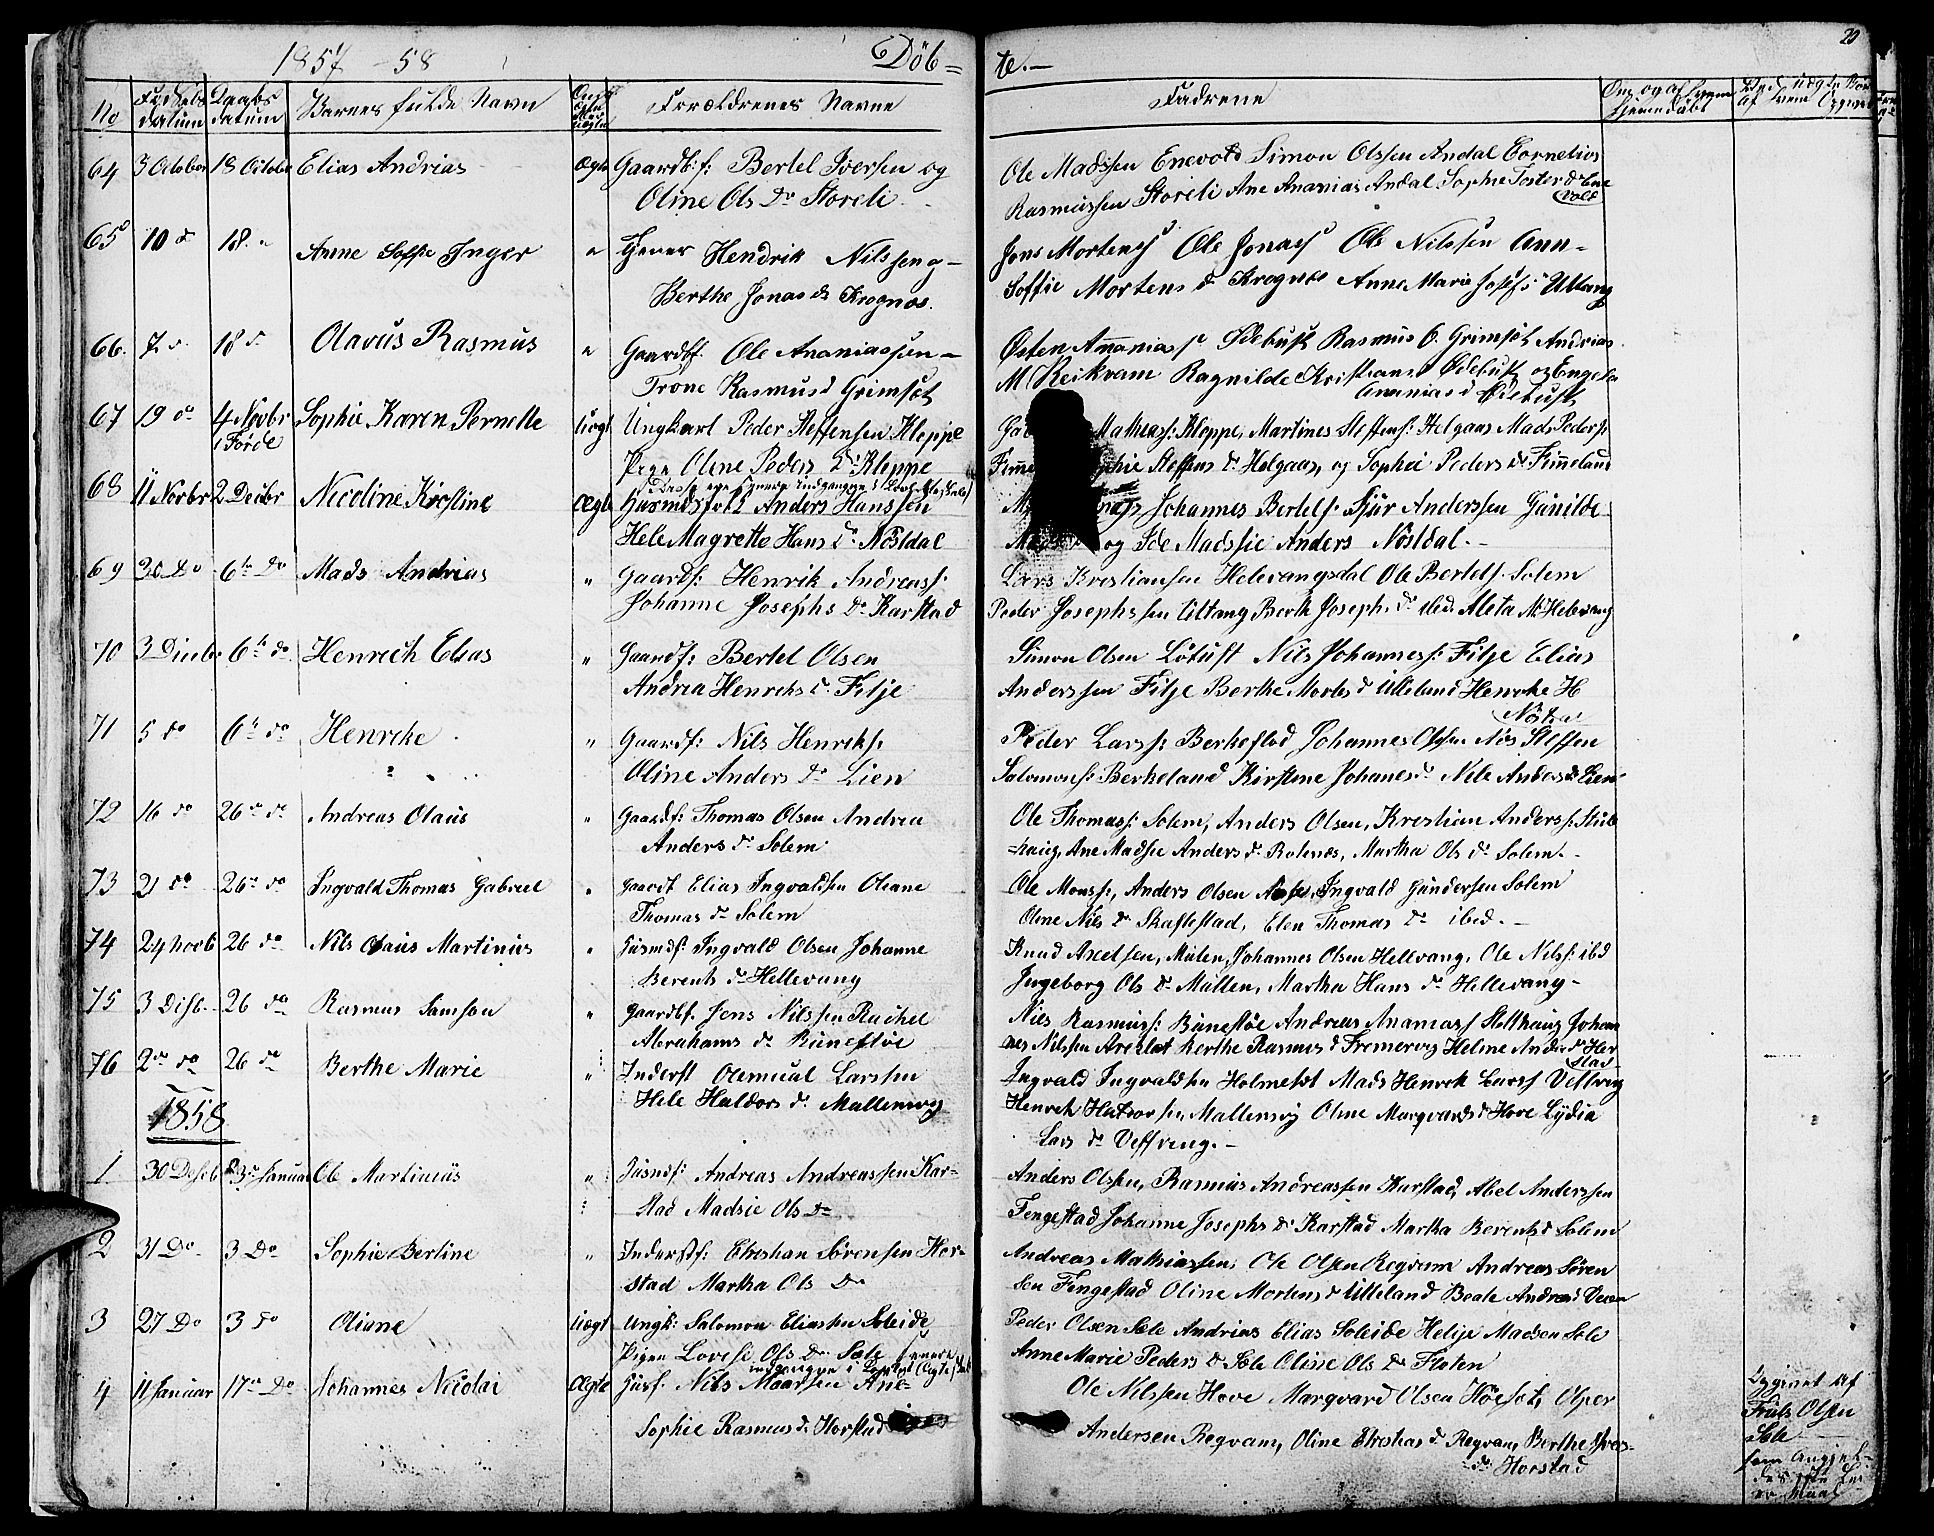 1857-58 Döb= te.- 20
No Fødsels datum Daabs datum Barnets fulde Navn Forældrenes Navne Fadrene
64 3 October 18 October Elias Andrias Ægte Gaardbf: Bertel Iversen og
Oline Ols Dr Storeli.
Ole Madssen Enevold Simon Olssen Andal Cornelius
Rasmussen Storeli Ane Ananias Andal Sophie Toster Dr Ene
vold
65 10 d 18 " Anne Soffie Inger " Hendrik Nilssen og
Berthe Jonas dr Krognæs.
Jens Mortens Ole Jonas Ole Nilssen Ann-
Soffie Mortens d Krognes Anne Marie Josefs Uttang
66. 7 d. 18 d Olavus Rasmus " Gaardbf. Ole Ananiassen
Trone Rasmus d Grimsöt
Østen Ananias Ødebust Rasmus O. Grimsöt Andrias
M Reikvam Ragnilde Kristians Ødebust og Engel
Ananias d Ødebust
67 19 do 4 Novbr i Førde Sophie Karen Pernelle Uægt Ungkarl Peder Steffensen Kleppe
Pige Oline Peders Dr Kleppe
Mathias: Kleppe, Martines Steffens: Helgaas Mads Peders
Steffens Dr Helgaas, og Sophie Peders Dr Fimmeland
68 11 Novbr 2 Decbr Nicoline Kirstine Ægte Husmdsfolk Anders Hanssen
Hele Magrette Hans Dr Nöstdal
Johannes Bertels. Sjur Anderssen Gunilde
og Ide Madssie Anders Nöstdal.-
69 30 Do 6te Do Mads Andrias " Gaardf: Henrik Andreass:
Johanne Josephs Dr Karstad
Lars Kristiansen Helevangsdal Ole Bertels. Solem
Peder Josephssen Uttang Berth Joseph. Dr ibid. Aleta M. Helevang
70 3 Decbr 6te do Henrich Elias " Gaardf: Bertel Olsen
Andrea Henriks D. Fitje
Simon Olsen Lötuft Nils Johanness: Fitje Elias
Anderssen Fitje Berthe Mortens d Ulleland Henrike H
Nöstdal
71 5 do 6te do Henrike " Gaardf: Nils Henriks:
Oline Anders Dr Lien
Peder Larss: Berkestad Johannes Olssen Nös Steffen
Salomons: Berkeland Kirstine Johannes dr Nile Anders dr Lien
72 16 do 26de do Andreas Olaus " Gaardf: Thomas Olsen Andrea
Anders dr Solem.
Ole Thomass: Solem, Anders Olsen, Kristian Anderss: Stub
=haug, Ane Madsie Anders dr Rotenæs, Martha Ols dr Solem.-
73 21 do 26de do Ingvald Thomas Gabriel " Gaardf Elias Ingvaldsen Oliane
Thomas dr Solem
Ole Monss:, Anders Olsen Ingvald Gundersen Solem
Oline Nils dr Skaflestad, Elen Thomas dr ibid.-
74 24 Novb 26 do Nils Olaus Martinus " Husmdf: Ingvald Olsen Johanne
Berents dr Hellevang
Knud Axelsen, Mulen, Johannes Olsen Hellvang, Ole Nils: ibd
Ingeborg Ols dr Mullen, Martha Hans dr Hellevang-
75 3 Desb. 26 do Rasmus Samson " Gaardbf. Jens Nilssen Rachel
Abrahams dr Rünestöe
Nils Rasmus: Bünestöe Andreas Ananias Stolthaug Johan
nes Nilssen Areklet Berthe Rasmus d Fremervig Helene Anders dr Her
stad
76 2de do 26 do Berthe Marie " Inderst Olemual Larssen
Hele Haldors dr Mallemvig
Ingvald Ingvaldsen Holmesöt Mads Henrik Larss Veffring
Henrik Halvorsen Mallemvig Oline Marqvards d Hove Lydia
Lars dr Veffreng.-
1858
1 30 Deseb 3de Januar Ole Martinius " Husmdf: Andreas Andreassen Kar=
stad Madsie Ols Dr
Anders Olssen, Rasmus Andreassen Karstad, Abel Anderssen
Fengestad Johanne Josephs dr Karstad Martha Berents d Solem
2 31 Do. 3 Do Sophie Bertine " Inderstf: Christian Sörensen Hor-
stad Martha Ols Dr
Andreas Mathiassen, Ole Olssen Reqvam Andreas Sören
sen Fengestad Oline Mortens d Ulleland Beate Andreas d
3 27 Do 3 Do Oliane Uægt Ungk: Salomon Eliassen Soleide
Pigen Lovise Ols Dr Sæle
Peder Olsen Sæle Andrias Elias Soleide Helije Madsen Sæle
Anne Marie Peders d Sæle Oline Ols Dr Floten
4 11 Januar 17de Do Johannes Nicolai Ægte Husf. Nils Maarsen Ane-
Sophie Rasmus d. Horstad
Ole Nilssen Hove Marqvard Olsen Höesöt, Olper
Andersen Reqvam, Oline Christias d Reqvam, Berthe Ivers-
dr Horstad
Opgivet af
Olsen
Sæle
som Angivel-